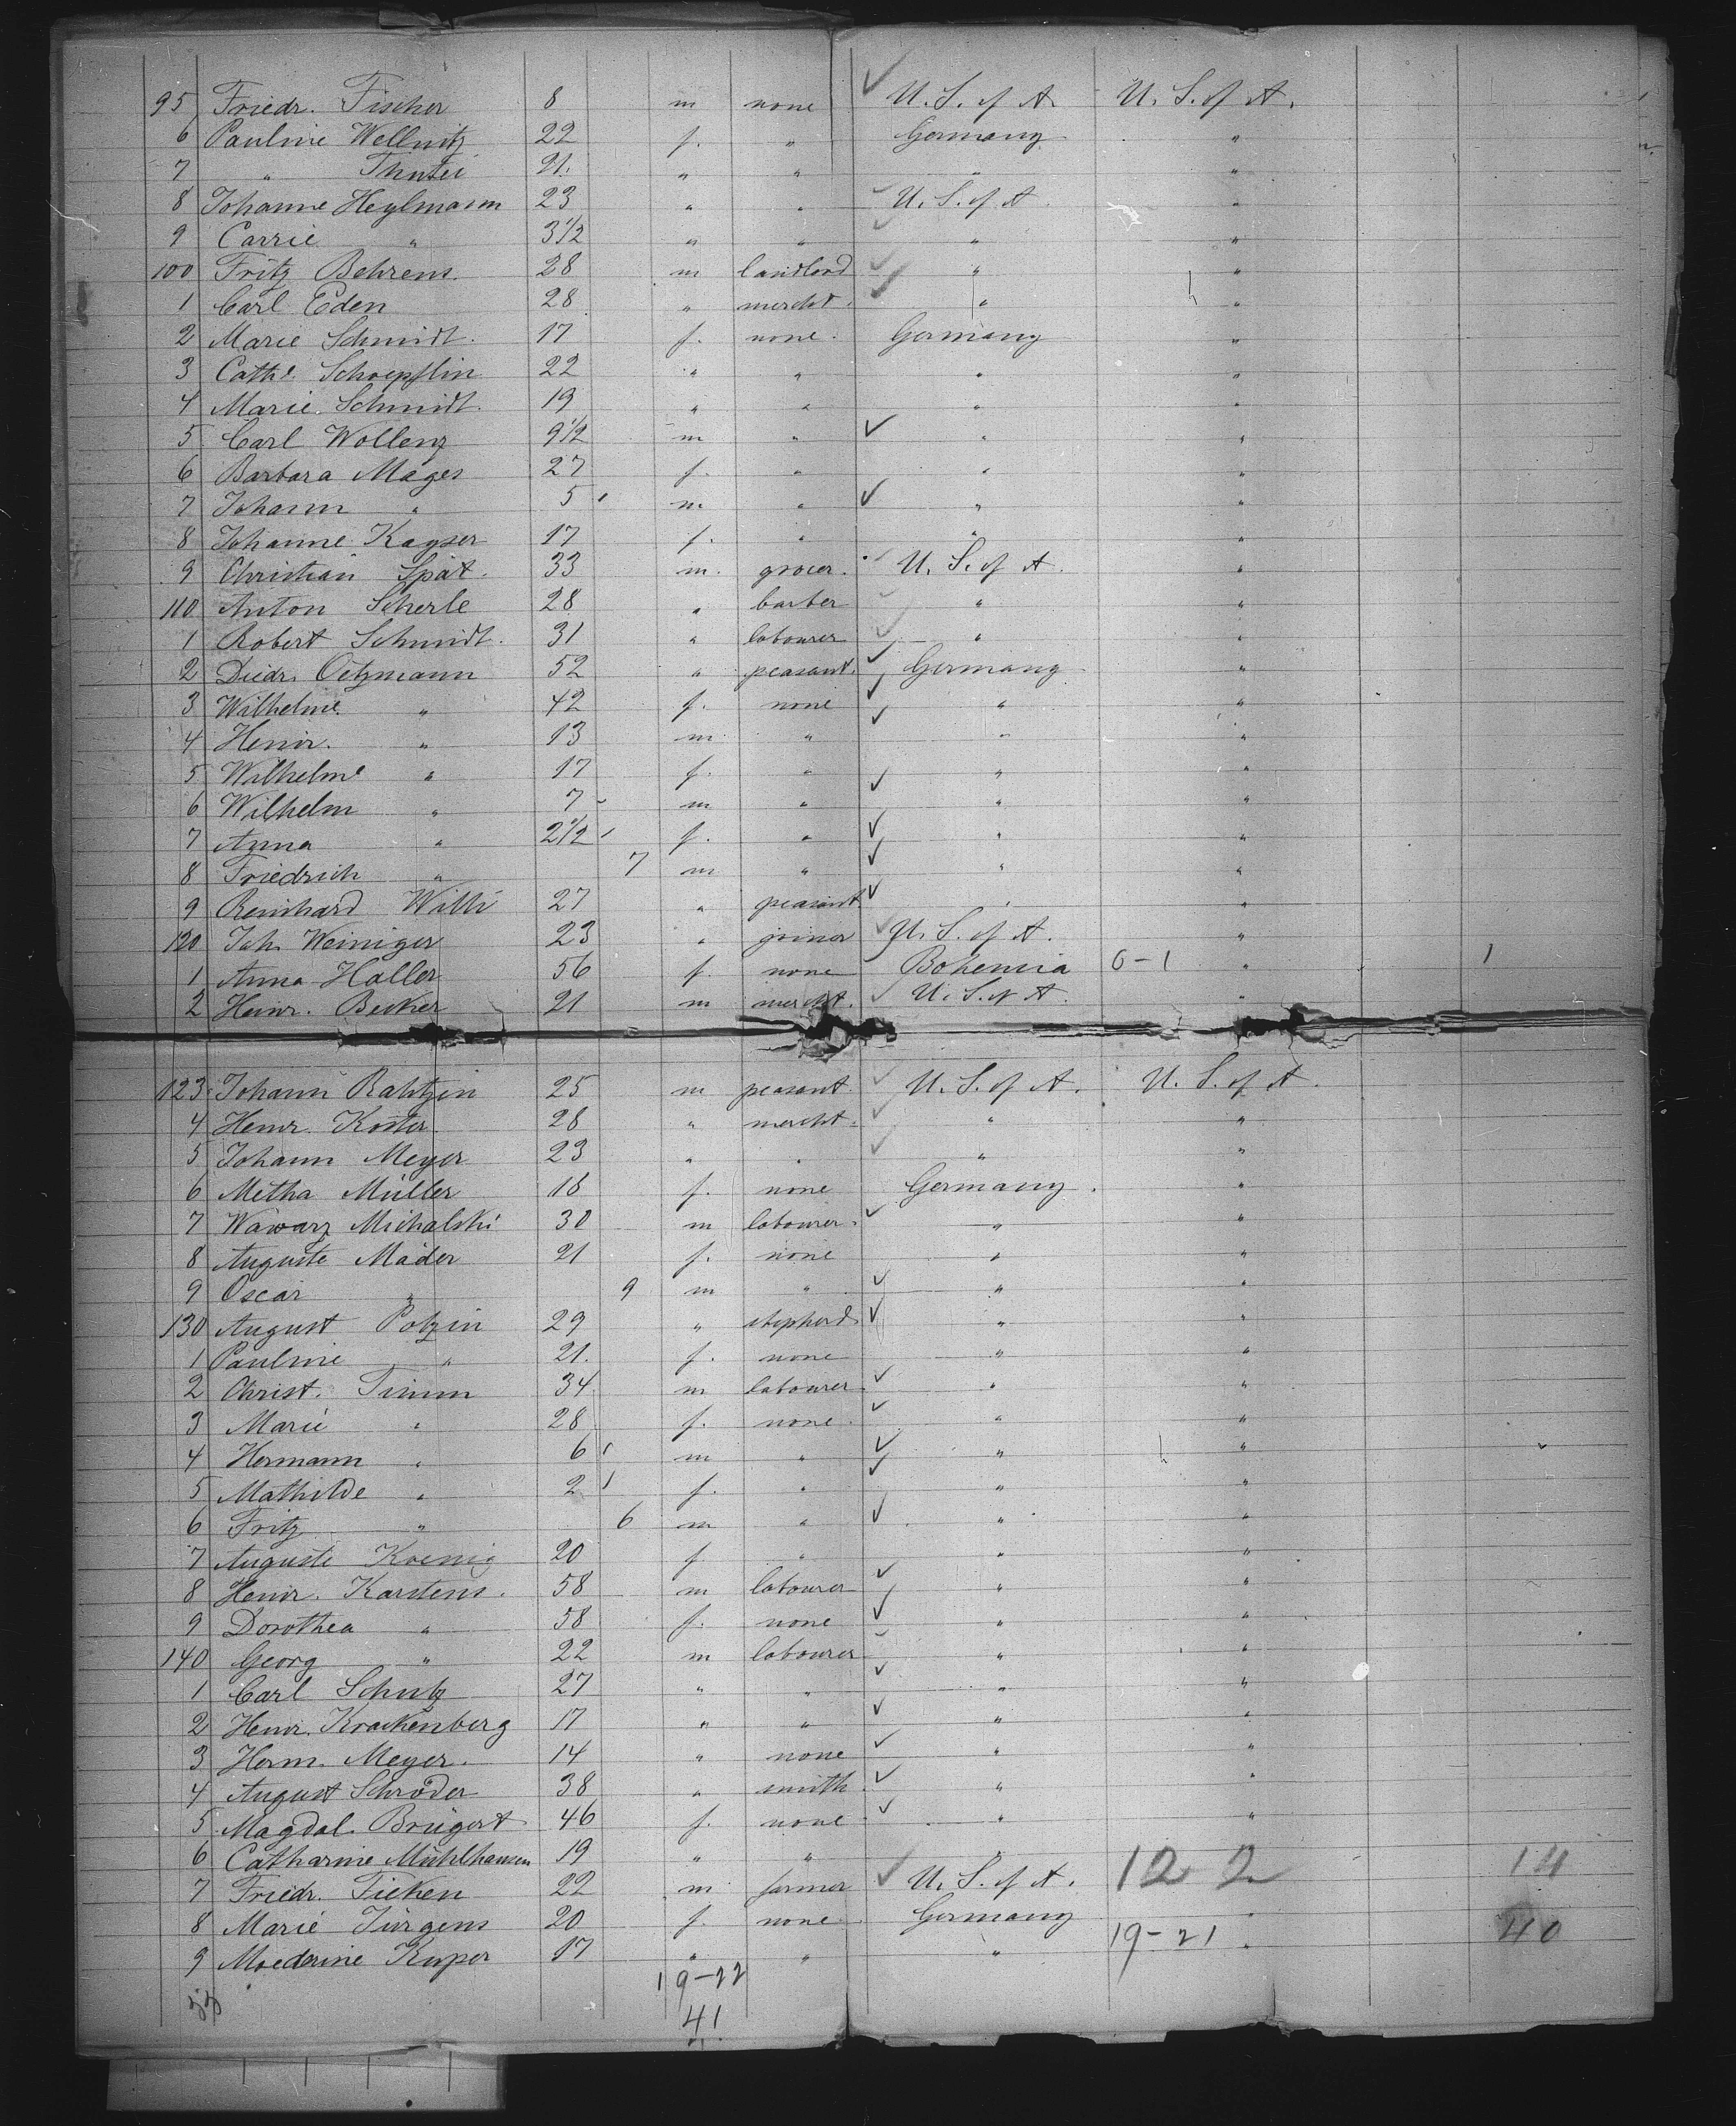 95 Friedr. Fischer 8 m none U. S. of A. U. S. of A.
6 Pauline Wellnitz 22 f. " Germany "
7 " 21. " " " "
8 Johanne Heylmann 23 " " U. S. of A. "
9 Carrie " 3 1/2 " " " "
100 Fritz Behrens 28 m landlord " "
1 Carl Eden 28 " mercht. " "
2 Marie Schmidt. 17 f. none. Germany "
3 Cathe. Schoepflin 22 " " " "
4 Marie Schmidt. 19 " " " "
5 Carl Wollenz 9 1/2 m " " "
6 Barbara Mages 27 f. " " "
7 Johann " 5 m " " "
8 Johanne Kayser 17 f. " " "
9 Christian Spät. 33 m. grocer. U. S. of A. "
110 Anton Scherle 28 " barber " "
1 Robert Schmidt. 31 " labourer " "
2 Diedr. Oetzmann 52 " peasant. Germany "
3 Wilhelmie " 42 f. none " "
4 Heinr. " 13 m " " "
5 Wilhelme " 17 f. " " "
6 Wilhelm " 7 m " " "
7 Anna " 2 1/2 f. " " "
8 Friedrich " 7 m " " "
9 Reinhard Witti 27 " peasant. " "
120 Joh. Weiniger 23 " joiner U. S. of A. "
1 Anna Haller 56 f. none Bohemia 0-1 " 1
2 Heinr. Becker 21 m mercht. U. S. of A. "
123 Johann Rahtzen 25 m peasant. U. S. of A. U. S. of A.
4 Heinr. Koster. 28 " mercht. " "
5 Johann Meyer 23 " " " "
6 Metha Müller 18 f. none Germany. "
7 Wawarz Michalski 30 m labourer. " "
8 Auguste Mäder 21 f. none " "
9 Oscar " 9 m " " "
130 August Potzin 29 " shepherd " "
1 Pauline " 21. f. none " "
2 Christ. Timm 34 m labourer. " "
3 Marie " 28 f. none. " "
4 Hermann " 6 m " " "
5 Mathilde " 2 f. " " "
6 Fritz " 6 m " " "
7 Auguste Koenig 20 f " " "
8 Heinr. Karstens. 58 m labourer " "
9 Dorothea " 58 f. none " "
140 Georg " 22 m labourer " "
1 Carl Schutz 27 " " " "
2 Heinr. Krackenberg 17 " " " "
3 Herm. Meyer. 14 " none " "
4 August Schröder 38 " smith. " "
5 Magdal. Brügert 46 f. none. " "
6 Catharine Mühlhausen 19 " " " 12 2 14
7 Friedr. Ficken 22 m farmer U. S. of A.
8 Marie Jürgens 20 f. none. Germany "
9 Kuper 17 " " " 19-21 " 40
19-22
41